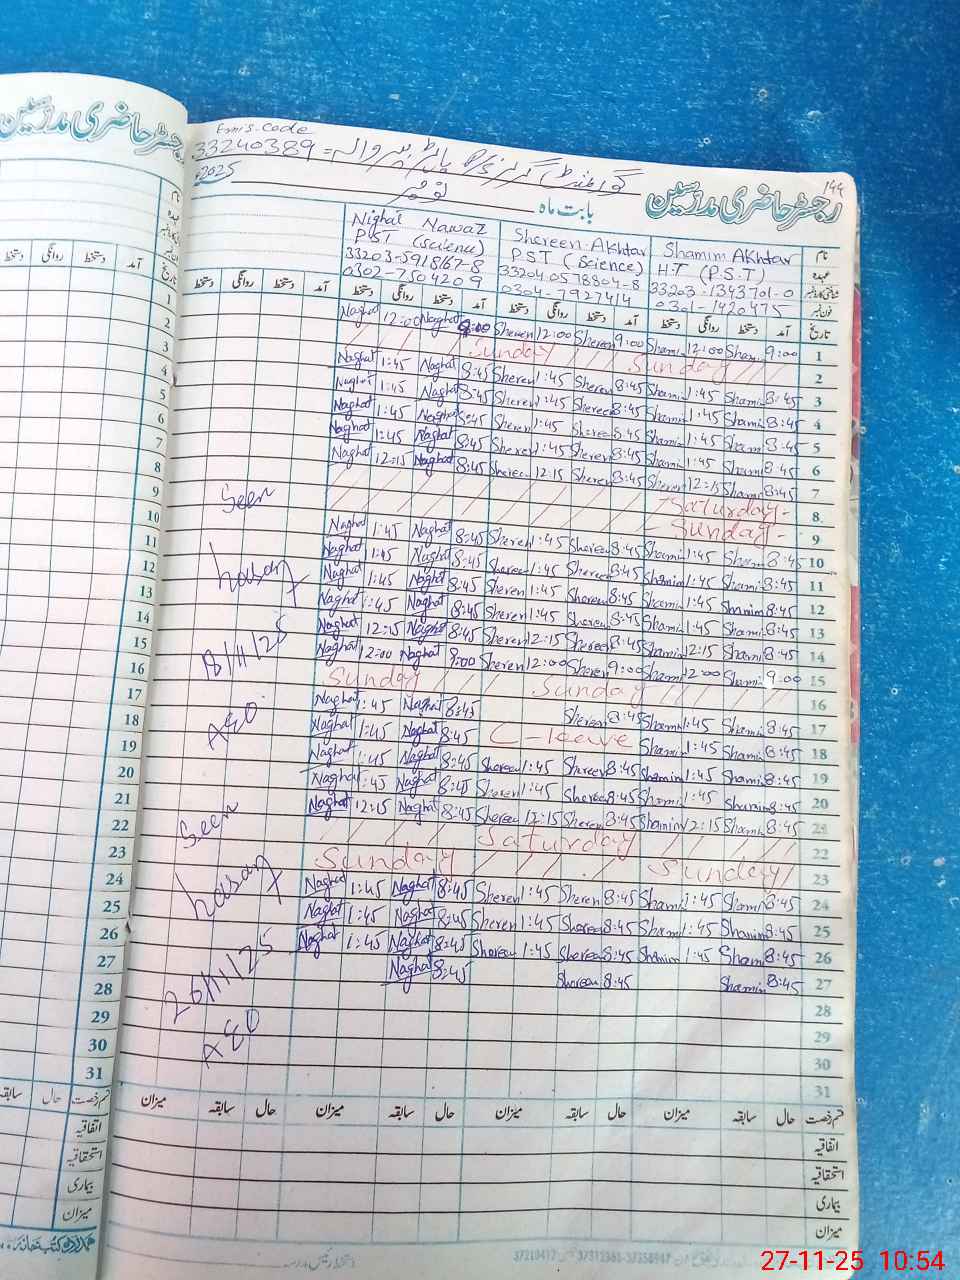 رجسٹر حاضری مدرسین
144
Emis.Code
33240389 =
گورنمنٹ گرلز
رجسٹر حاضری مدرسین
2025
نومبر
بابت ماہ
نام
Nighat Nawaz
Shereen Akhtar
Shamim Akhtar
عہدہ
PST (science)
P.ST (Science)
H.T (P.S.T)
شناختی کارڈ نمبر
33203-5918167-8
33204 0578804-8
33203-1343701-0
فون نمبر
0302-7504209
0304-7927414
0301-1420475
تاریخ آمد دستخط روانگی دستخط آمد دستخط روانگی دستخط آمد دستخط روانگی دستخط آمد دستخط روانگی دستخط
Naghat 12:00 Naghat 9:00 Sheren 12:00 Sheren 9:00 Shami 12:00 Sham 9:00 1
Sunday Sunday 2
Naghat 1:45 Naghat 8:45 Sheren 1:45 Sheren 8:45 Shami 1:45 Shami 8:45 3
Naghat 1:45 Naghat 8:45 Sheren 1:45 Sheree 8:45 Shami 1:45 Shami 8:45 4
Naghat 1:45 Naghat 8:45 Sheren 1:45 Sheree 8:45 Shami 1:45 Sham 8:45 5
Naghat 1:45 Naghat 8:45 Sheren 1:45 Sheren 8:45 Shami 1:45 Sham 8:45 6
Naghat 12:15 Naghat 8:45 Sheree 12:15 Sheree 8:45 12:15 Sham 8:45 7
Saturday- 8
Seen
Sunday- 9
Naghat 1:45 Naghat 8:45 Sheren 1:45 Sheree 8:45 Shami 1:45 Sham 8:45 10
Naghat 1:45 Naghat 8:45 Sheree 1:45 Sheree 8:45 Shamim 1:45 Shami 8:45 11
Naghat 1:45 Naghat 8:45 Sheren 1:45 Sheree 8:45 Shami 1:45 Shamim 8:45 12
Naghat 1:45 Naghat 8:45 Sheren 1:45 Sheree 8:45 Shami 1:45 Shami 8:45 13
Naghat 12:15 Naghat 8:45 Sheren 12:15 Sheree 8:45 Shami 12:15 Sham 8:45 14
Naghat 12:00 Naghat 9:00 Sheren 12:00 Sheren 9:00 Sham 12:00 Shami 9:00 15
18/11/25
Sunday Sunday 16
Naghat 1:45 Naghat 8:45 Sheren 8:45 Sham 1:45 Shami 8:45 17
Naghat 1:45 Naghat 8:45 C-leave Shami 1:45 Shami 8:45 18
Naghat 1:45 Naghat 8:45 Sheree 1:45 Sheree 8:45 Shamim 1:45 Shami 8:45 19
Naghat 1:45 Naghat 8:45 Sheren 1:45 Sheree 8:45 Shami 1:45 Shamim 8:45 20
Naghat 12:15 Naghat 8:45 Sheree 12:15 Sheren 8:45 Shamim 12:15 Sham 8:45 21
Seen
Saturday 22
Sunday Sunday 23
Naghat 1:45 Naghat 8:45 Sheren 1:45 Sheren 8:45 Shami 1:45 Shami 8:45 24
Naghat 1:45 Naghat 8:45 Sheren 1:45 Sheree 8:45 Sham 1:45 Shamim 8:45 25
Naghat 1:45 Naghat 8:45 Sheree 1:45 Sheree 8:45 Shamim 1:45 Sham 8:45 26
Naghat 8:45 Sheren 8:45 Shamim 8:45 27
26/11/25
28
29
30
31
قسم رخصت حال سابقہ میزان حال سابقہ میزان حال سابقہ میزان حال سابقہ میزان
اتفاقیہ
استحقاقیہ
بیماری
میزان
27-11-25 10:54